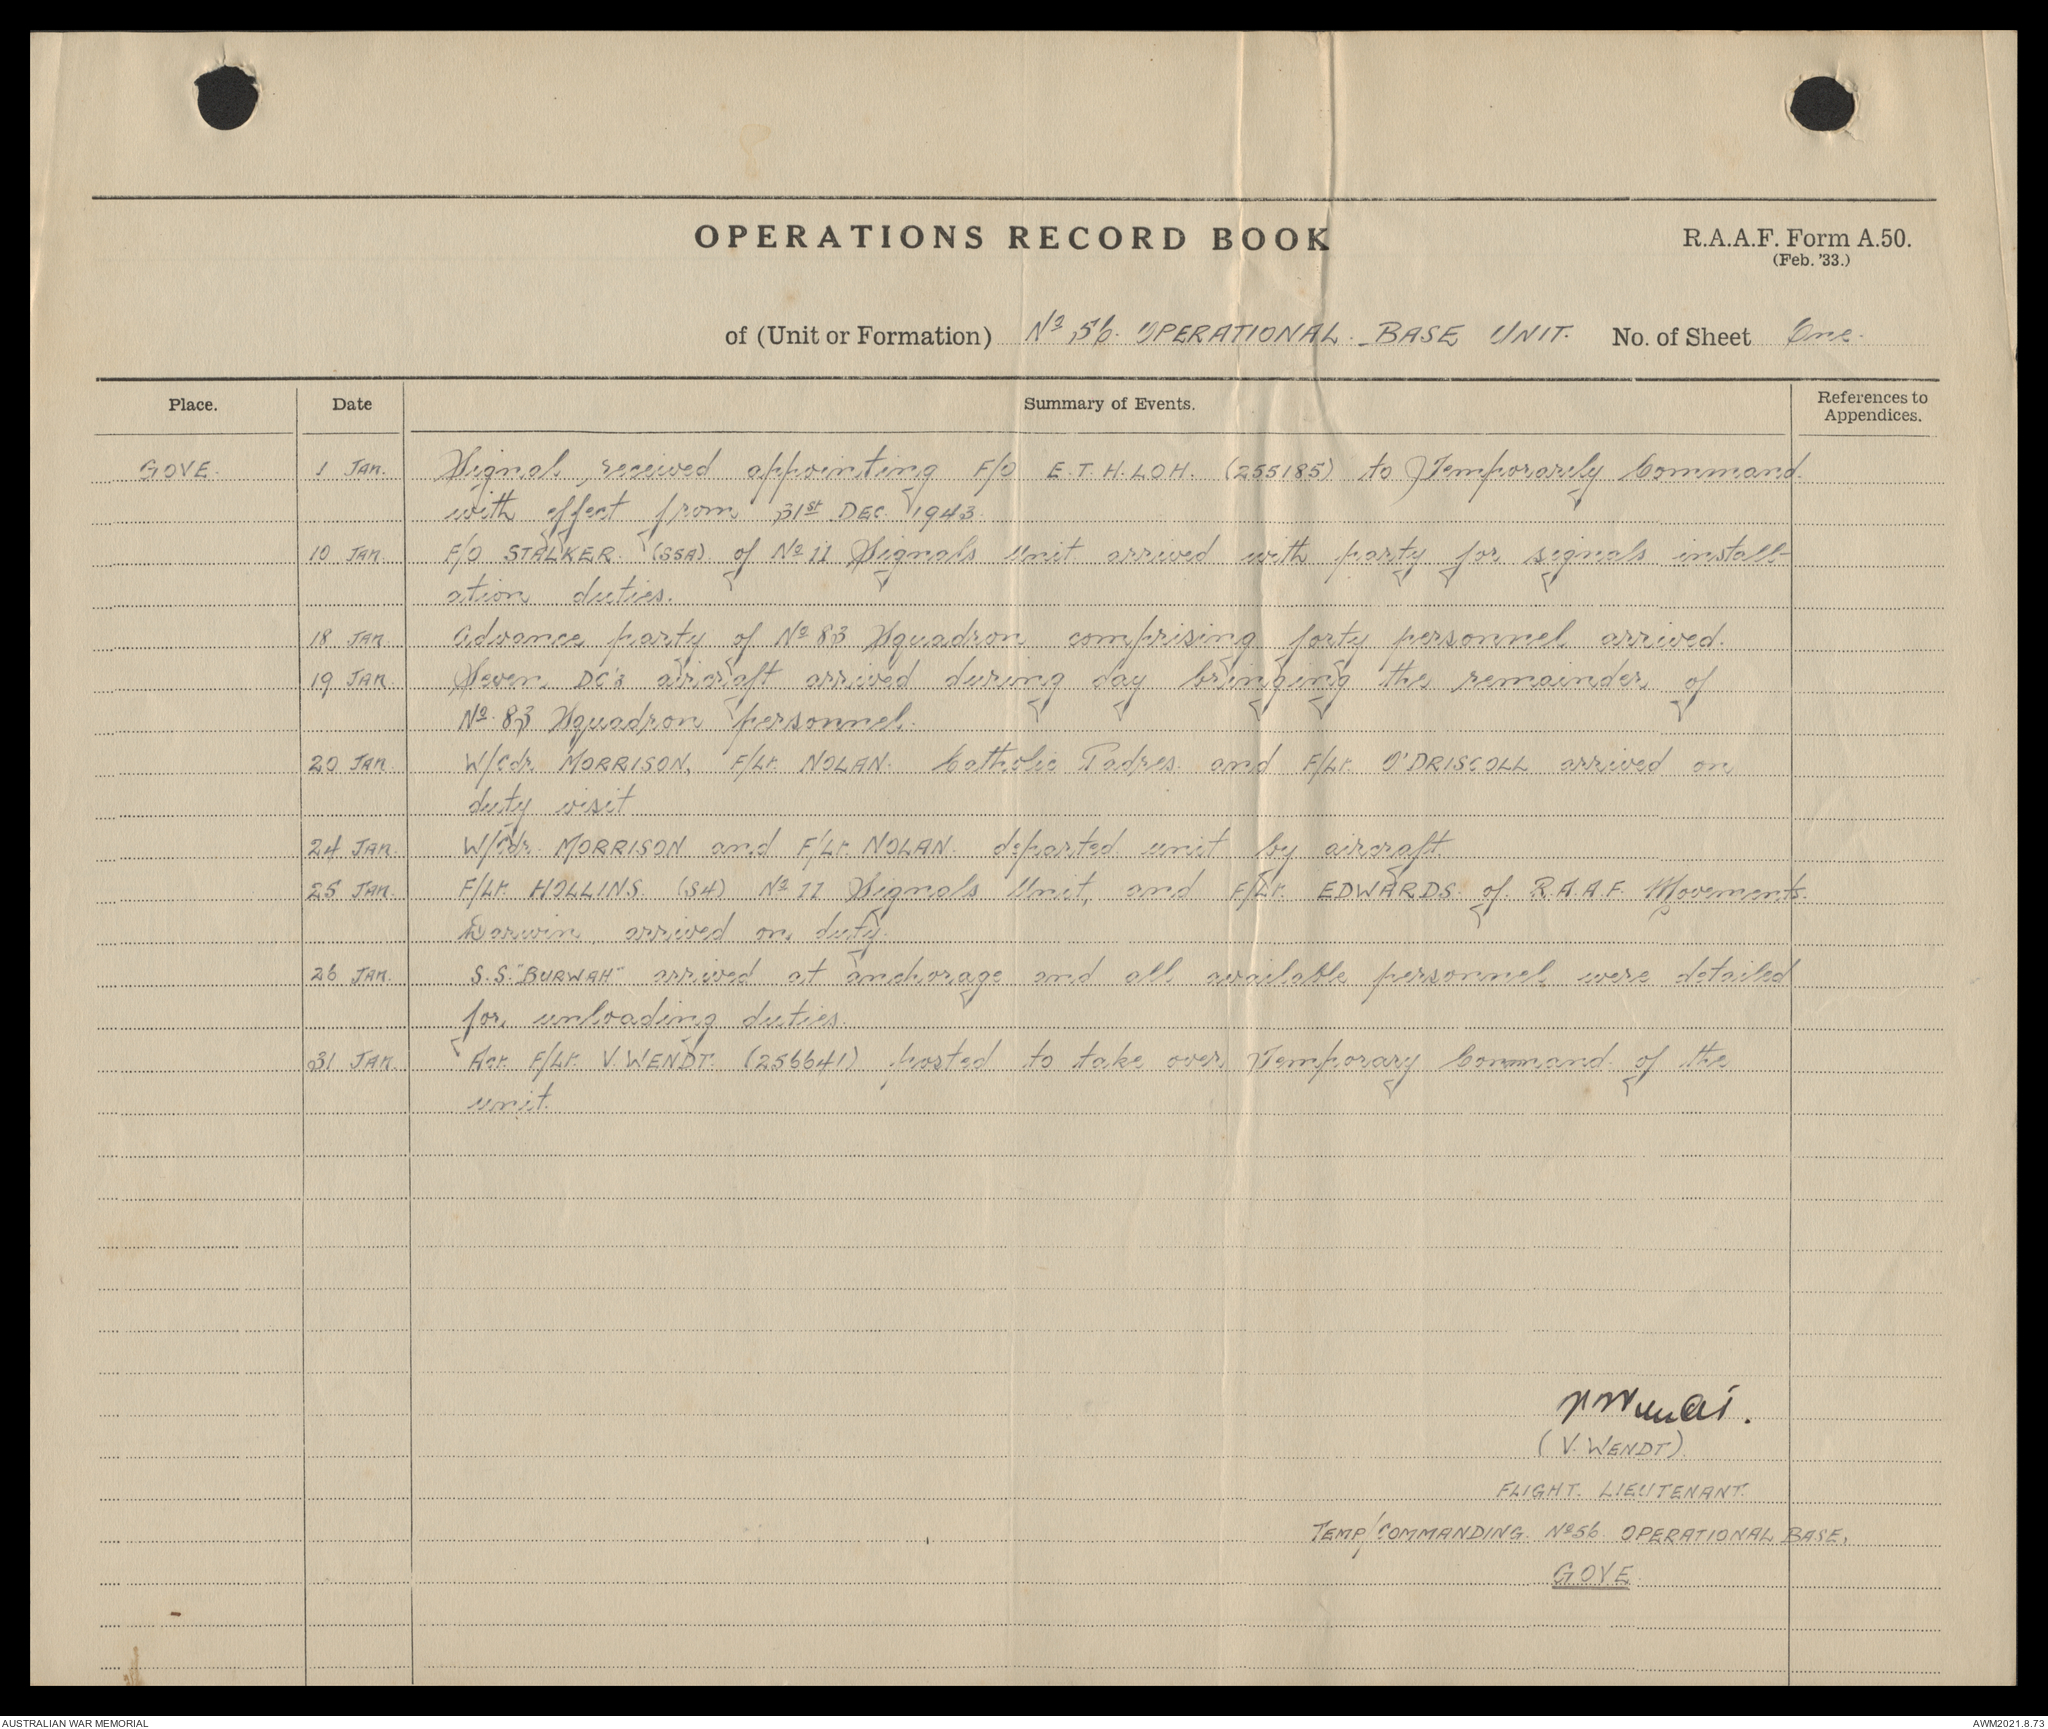 OPERATIONS RECORD BOOK
R.A.A.F. Form A.50.
(Feb. '33.)
of (Unit or Formation) No 56. OPERATIONAL BASE UNIT. No. of Sheet One.
Place. Date Summary of Events. References to Appendices.
GOVE. 1 JAN. Signal received appointing F/O E.T.H. LOH. (255185) to Temporarily Command.
with effect from 31st DEC. 1943.
10 JAN. F/O STALKER. (SSA) of No 11 Signals Unit arrived with party for signals install-
ation duties.
18 JAN. Advance party of No 83 Squadron comprising forty personnel arrived.
19 JAN. Seven DC's aircraft arrived during day bringing the remainder of
No. 83 Squadron personnel.
20 JAN. W/Cdr MORRISON, F/Lt. NOLAN. Catholic Padres and F/Lt. O'DRISCOLL arrived on
duty visit
24 JAN. W/Cdr. MORRISON and F/Lt. NOLAN. departed unit by aircraft.
25 JAN. F/Lt. HOLLINS. (S4) No 11 Signals Unit, and F/Lt. EDWARDS. of R.A.A.F. Movements.
Darwin, arrived on duty.
26 JAN. S.S. "BURWAH" arrived at anchorage and all available personnel were detailed
for unloading duties.
31 JAN. Act. F/Lt. V. WENDT. (256641) posted to take over Temporary Command of the
unit.
V Wendt.
(V. WENDT).
FLIGHT. LIEUTENANT.
TEMP/COMMANDING. No 56. OPERATIONAL BASE,
GOVE.
AUSTRALIAN WAR MEMORIAL
AWM2021.8.73